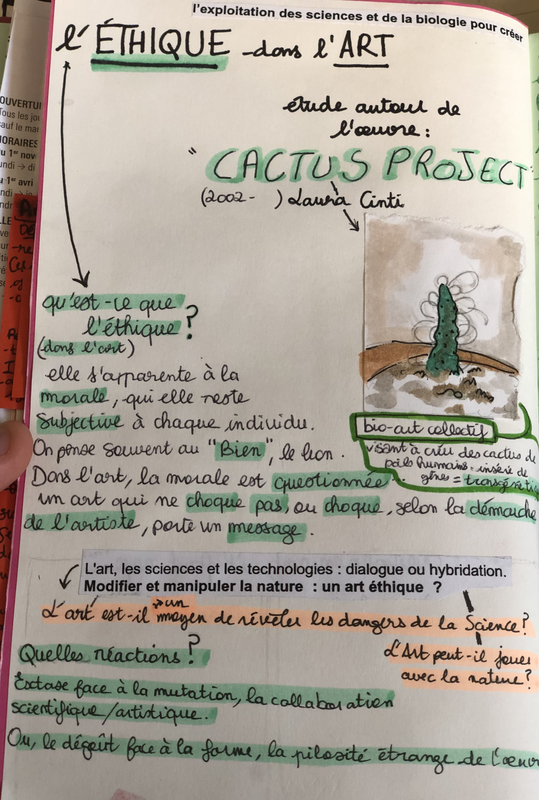 l'exploitation des sciences et de la biologie pour créer
l'ÉTHIQUE dans l'ART
étude autour de
l'œuvre :
"CACTUS PROJECT"
(2002- ) Laura Cinti
qu'est-ce que
l'éthique ?
(dans l'art)
elle s'apparente à la
morale, qui elle reste
subjective à chaque individu.
On pense souvent au "Bien", le bon.
Dans l'art, la morale est questionnée.
un art qui ne choque pas, ou choque, selon la démarche
de l'artiste, porte un message.
bio-art collectif
visant à créer des cactus de
poils humains : insérer de
gênes = transgénétique
L'art, les sciences et les technologies : dialogue ou hybridation.
Modifier et manipuler la nature : un art éthique ?
L'art est-il un moyen de révéler les dangers de la Science?
L'Art peut-il jouer
avec la nature?
Quelles réactions?
Extase face à la mutation, la collaboration
scientifique/artistique.
Ou, le dégoût face à la forme, la pilosité étrange de l'œuvre
OUVERTU
Tous les jou
sauf le mar
HORAIRES
u 1er nov
undi → di
u 1er avri